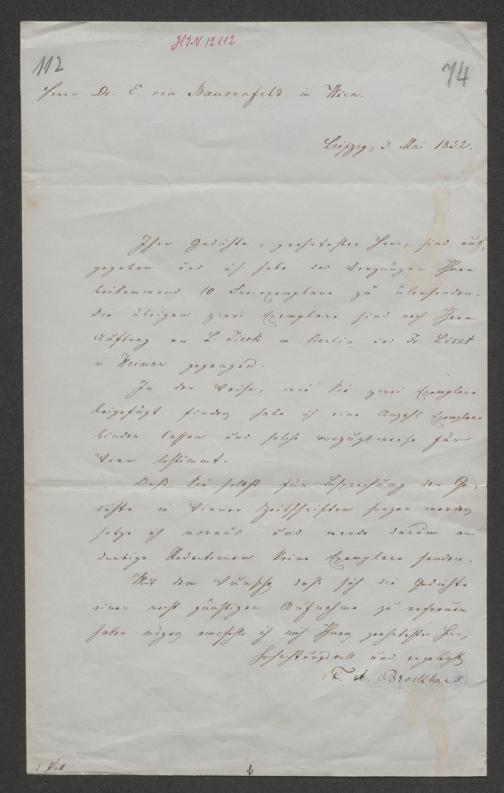 HIN 12112
112
74
Herrn Dr. E. von Bauernfeld in Wien.
Leipzig, 3. Mai 1852.
Ihre Gedichte, geehrtester Herr, sind aus-
gegeben und ich habe das Vergnügen Ihnen
beikommend 10 Freiexemplare zu übersenden.
Die übrigen zwei Exemplare sind nach Ihrem
Auftrag an L. Tieck in Berlin und Fr. Liszt
in Weimar gegangen.
In der Weise, wie Sie zwei Exemplare
beigefügt finden habe ich eine Anzahl Exemplare
binden lassen und solche vorzugsweise für
Wien bestimmt.
Daß Sie selbst für Besprechung der Ge-
dichte in Wiener Zeitschriften sorgen werden
setze ich voraus und werde darum an
dortige Redactionen keine Exemplare senden.
Mit dem Wunsche daß sich die Gedichte
einer recht günstigen Aufnahme zu erfreuen
haben mögen empfehle ich mich Ihnen geehrtester Herr,
hochachtungsvoll und ergebenst
F. A. Brockhaus